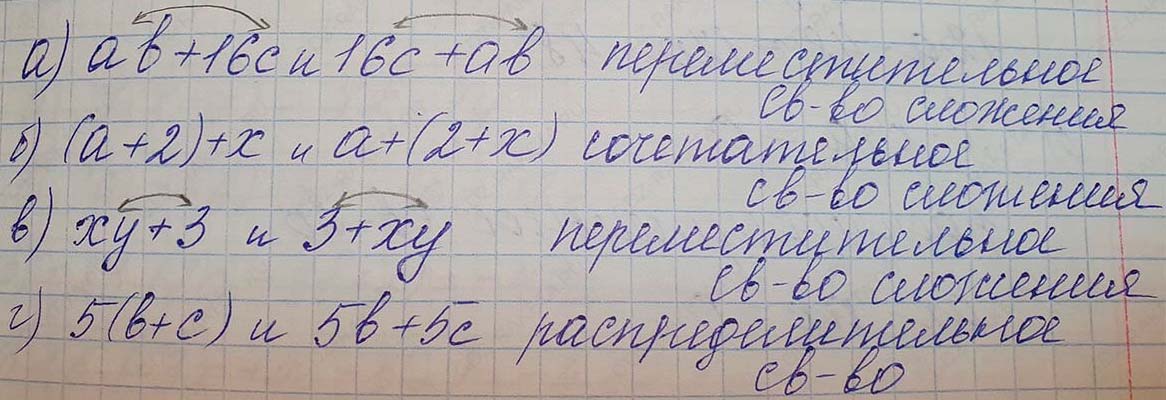 а) ab+16c и 16c+ab переместительное
св-во сложения
б) (a+2)+x и a+(2+x) сочетательное
св-во сложения
в) xy+3 и 3+xy переместительное
св-во сложения
г) 5(b+c) и 5b+5c распределительное
св-во